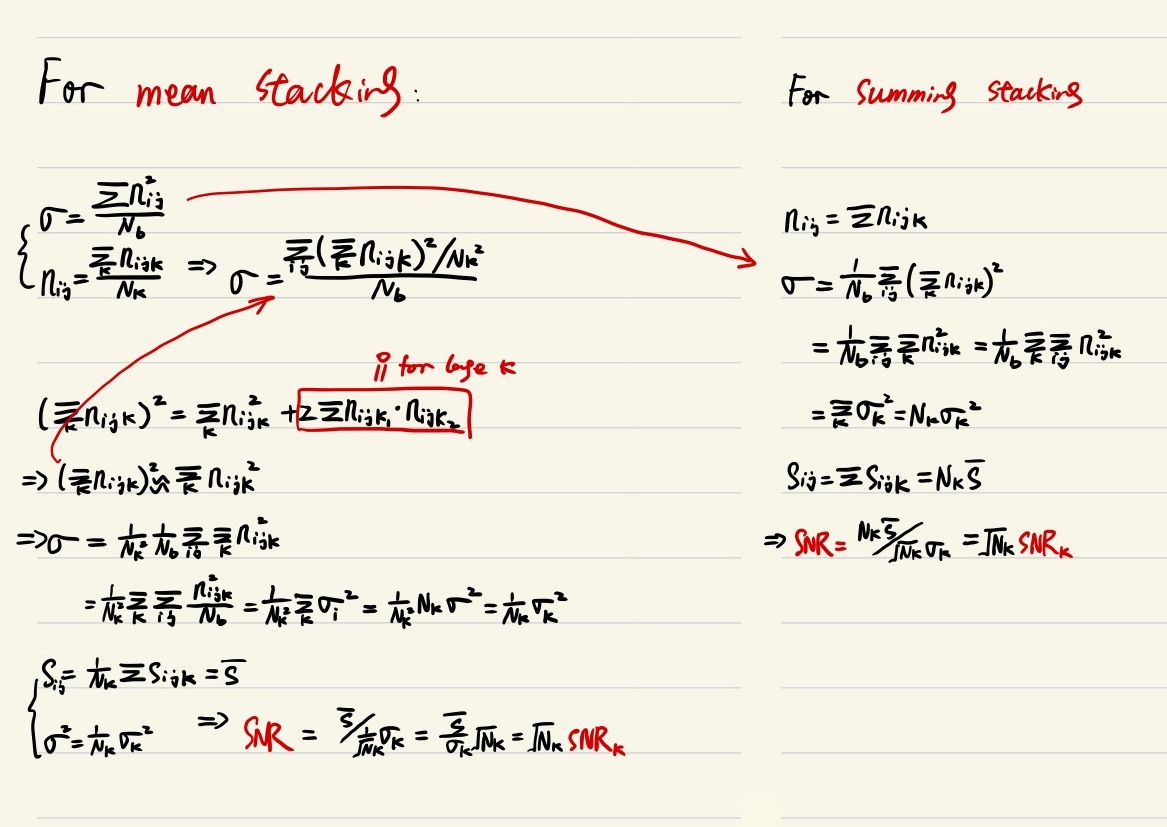 For mean stacking:
σ = Σn²ᵢⱼ / N_b
nᵢⱼ = Σₖ nᵢⱼₖ / Nₖ => σ = Σᵢⱼ(Σₖ nᵢⱼₖ)²/Nₖ² / N_b
for large k
(Σₖ nᵢⱼₖ)² = Σₖ n²ᵢⱼₖ + 2Σnᵢⱼₖ₁·nᵢⱼₖ₂
=> (Σₖ nᵢⱼₖ)² ≈ Σₖ nᵢⱼₖ²
=> σ = 1/Nₖ² 1/N_b Σᵢⱼ Σₖ n²ᵢⱼₖ
= 1/Nₖ² Σₖ Σᵢⱼ n²ᵢⱼₖ/N_b = 1/Nₖ² Σₖ σᵢ² = 1/Nₖ² Nₖ σ² = 1/Nₖ σₖ²
Sᵢⱼ = 1/Nₖ Σ Sᵢⱼₖ = S̅
σ² = 1/Nₖ σₖ² => SNR = S̅ / (1/√Nₖ) σₖ = S̅/σₖ √Nₖ = √Nₖ SNRₖ
For summing stacking
nᵢⱼ = Σ nᵢⱼₖ
σ = 1/N_b Σᵢⱼ (Σₖ nᵢⱼₖ)²
= 1/N_b Σᵢⱼ Σₖ n²ᵢⱼₖ = 1/N_b Σₖ Σᵢⱼ n²ᵢⱼₖ
= Σₖ σₖ² = Nₖ σₖ²
Sᵢⱼ = Σ Sᵢⱼₖ = Nₖ S̅
=> SNR = Nₖ S̅ / √Nₖ σₖ = √Nₖ SNRₖ